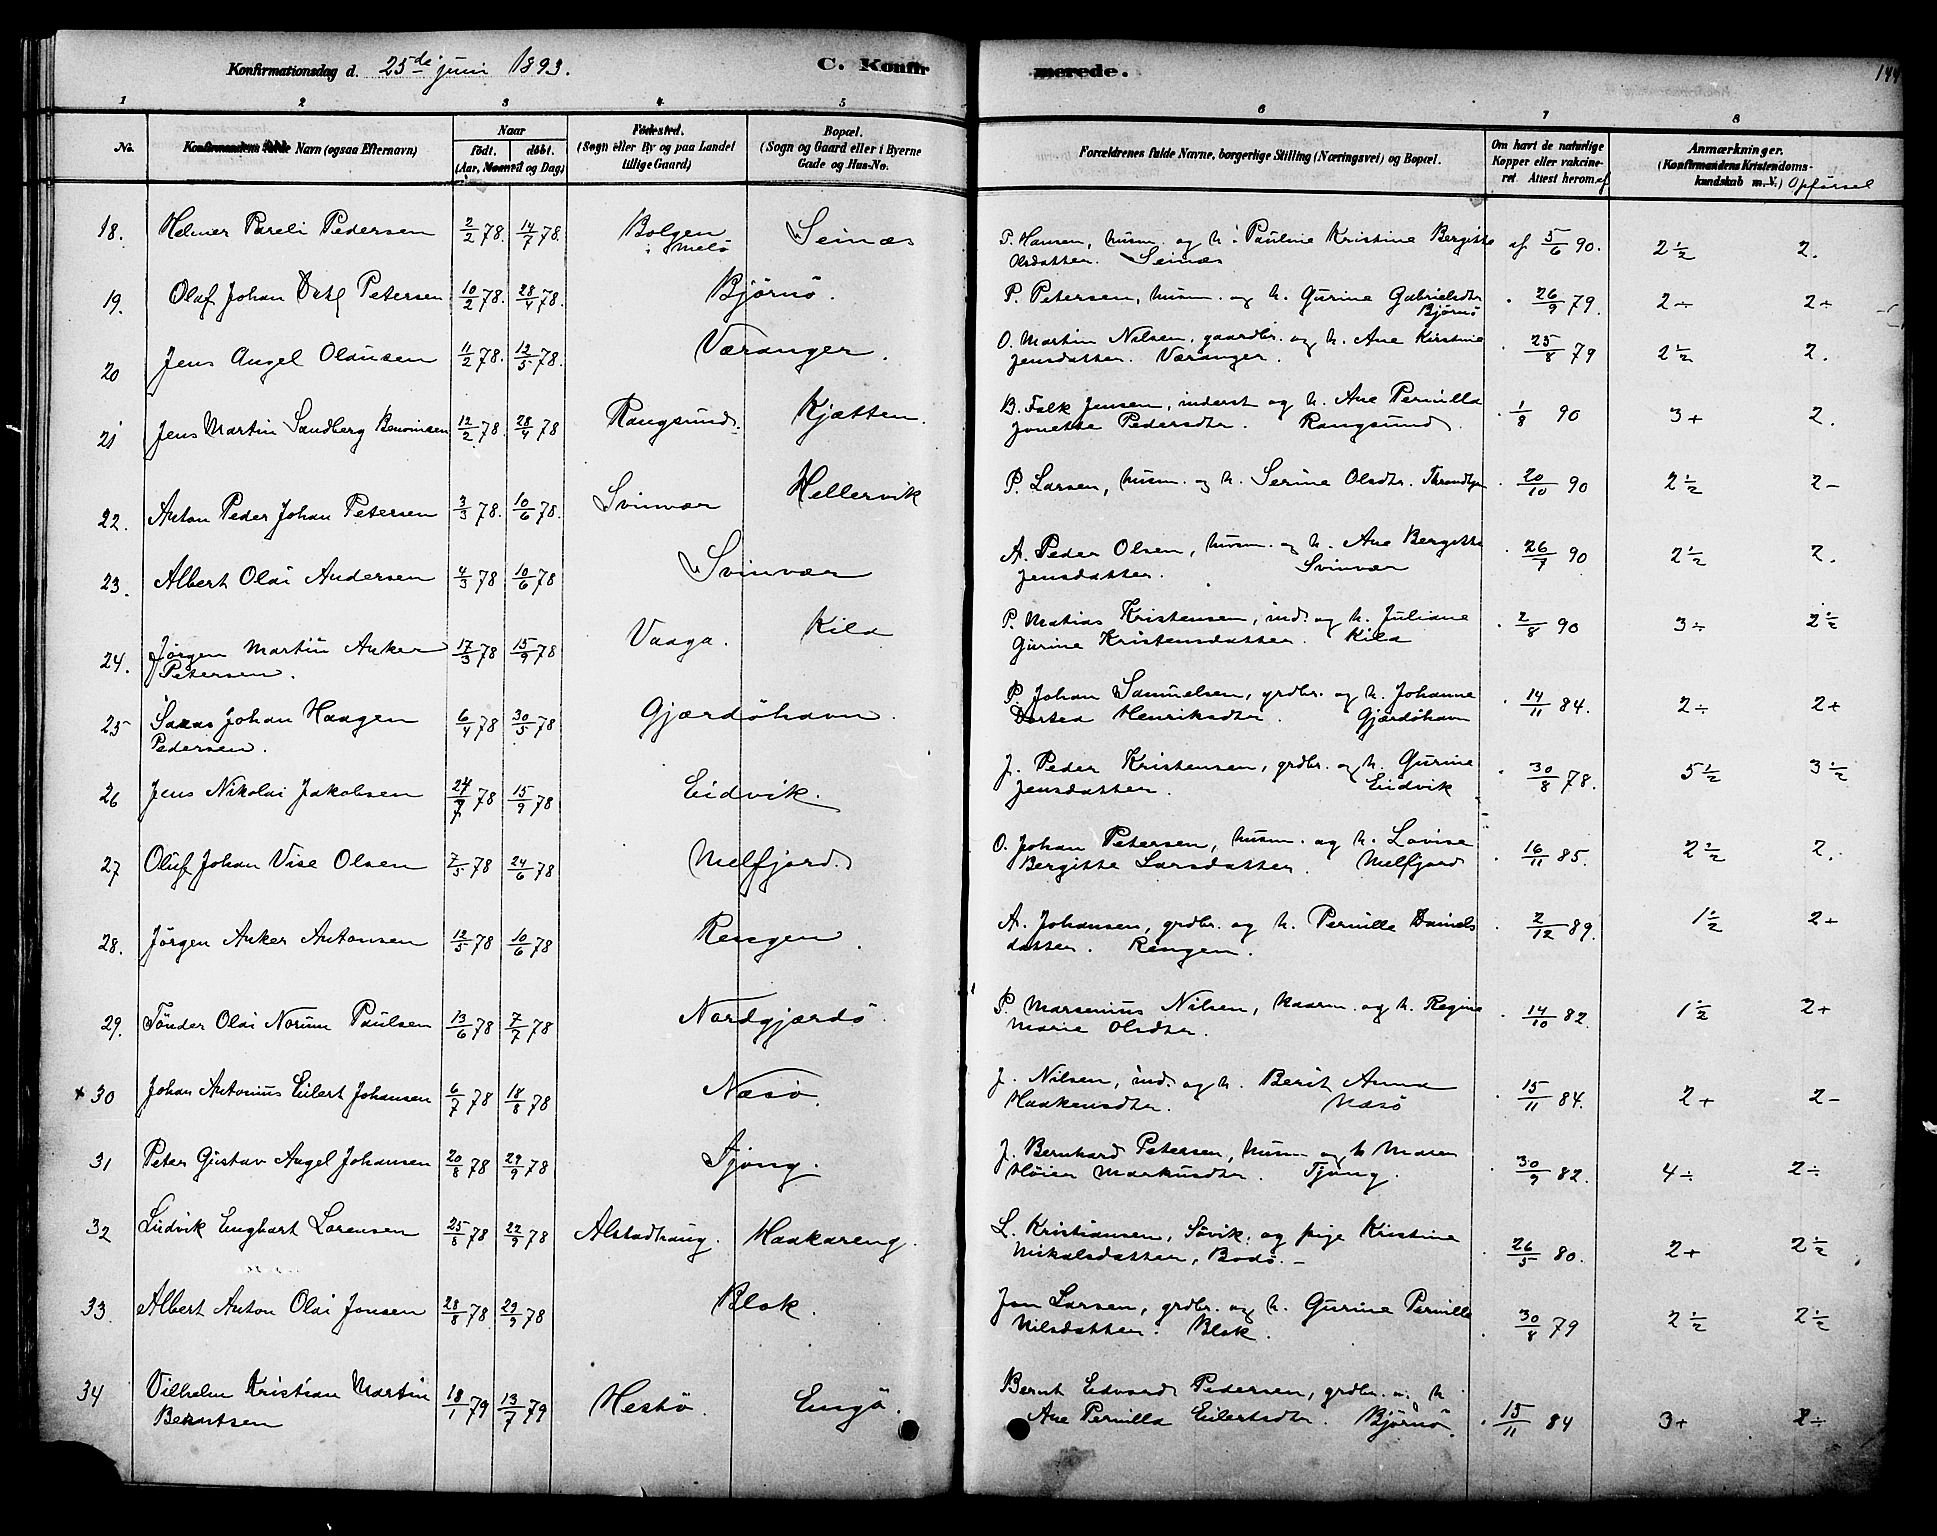 Konfirmationsdag d. 25de juni 1893.
C. Konfirmerede.
144
1 2 3 4 5 6 7 8
No.
Konfirmandens fulde Navn (ogsaa Efternavn)
Naar
født. døbt.
(Aar, Maaned og Dag)
Fødested.
(Sogn eller By og paa Landet tillige Gaard)
Bopæl.
(Sogn og Gaard eller i Byerne Gade og Hus-No.
Forældrenes fulde Navne, borgerlige Stilling (Næringsvei) og Bopæl.
Om havt de naturlige Kopper eller vakcineret Attest herom af
Anmærkninger.
(Konfirmandens Kristendomskundskab m. V.) Opførsel
18. Helmer Pareli Pedersen 2/2 78. 14/7 78. Bolgen i Melö Seinæs P. Hansen, husm. og h. Pauline Kristine Bergitte
Olsdatter. Seinæs af 5/6 90. 2½ 2.
19. Olaf Johan Dahl Petersen 10/2 78. 28/4 78. Björnö. P. Petersen, husm. og h. Gurine Gabrielsdtr
Björnö " 26/9 79. 2÷ 2÷
20 Jens Angel Olausen 11/2 78. 12/5 78. Væranger. O. Martin Nilsen, gaardbr. og h. Ane Kirstine
Jensdatter. Væranger. " 25/8 79 2½ 2.
21 Jens Martin Sandberg Benoinisen 12/2 78. 28/4 78 Rangsund. Kjætten. B. Falk Jensen, inderst og h. Ane Pernilla
Jonette Pedersdtr. Rangsund. " 1/8 90 3+ 2.
22. Anton Peder Johan Petersen 3/3 78. 10/6 78. Svinvær Hellervik P. Larsen, husm. og h. Serine Olsdtr. " 20/10 90 2½ 2-
23. Albert Olai Andersen 4/3 78 10/6 78 Svinvær A. Peder Olsen, husm. og h. Ane Bergitte
Jensdatter. Svinvær " 26/7 90 2½ 2.
24. Jörgen Martin Anker
Petersen. 17/3 78 15/9 78 Vaaga. Kila P. Matias Kristensen, ind. og h. Juliane
Gurine Kristensdatter. Kila " 2/8 90 3÷ 2½
25 Johan Haagen
Pedersen. 6/4 78 30/5 78 Gjærdöhavn. P. Johan Samuelsen, grdbr. og h. Johanne
Dortea Henriksdtr. Gjærdöhavn " 14/11 84. 2÷ 2+
26 Jens Nikolai Jakobsen 27/7 78 15/9 78 Eidvik. J. Peder Kristensen, grdbr. og h. Gurine
Jensdatter. Eidvik " 30/8 78. 5½ 3½
27 Oluf Johan Vise Olsen 7/5 78 24/6 78 Melfjord. O. Johan Petersen, husm. og h. Lovise
Bergitte Larsdatter. Melfjord " 16/11 85. 2½ 2.
28. Jörgen Anker Antonsen 12/5 78 10/6 78 Rengen. A. Johansen, grdbr. og h. Pernille Daniels
datter. Rengen. " 2/12 89. 1½ 2+
29. Tönder Olai Norum Paulsen 13/6 78 7/7 78 Nordgjærdö. P. Marsenius Nilsen, kaarm. og h. Regine
Marie Olsdtr. " 14/10 82. 1½ 2+
+ 30 Johan Antonius Eilert Johansen 6/7 78 18/8 78 Næsö. J. Nilsen, ind. og h. Berit Anna
Haakensdtr. Næsö " 15/11 84. 2+ 2-
31 Peter Gustav Angel Johansen 20/8 78 29/9 78 Tjong. J. Bernhard Petersen, husm og h Maren
Höier Markusdtr. Tjong. " 30/9 82. 4÷ 2÷
32 Ludvik Enghart Lorensen 25/8 78 22/9 78 Alstadhaug. Haakareng. L. Kristiansen, Sövik. og pige Kristine
Nikolsdatter, Bodö. - " 26/5 80. 2+ 2½
33. Albert Anton Olai Jonsen 28/8 78. 29/9 78 Blok. Jon Larsen, grdbr. og h. Gurine Pernille
Nilsdatter. Blok. " 30/8 79 2½ 2½
34 Vilhelm Kristian Martin
Berntsen 18/1 79 13/7 79 Hestö. Engö. Bernt Edvard Pedersen, grdbr. og h
Ane Pernilla Eilertsdtr. Björnö. " 15/11 84 3+ 2÷